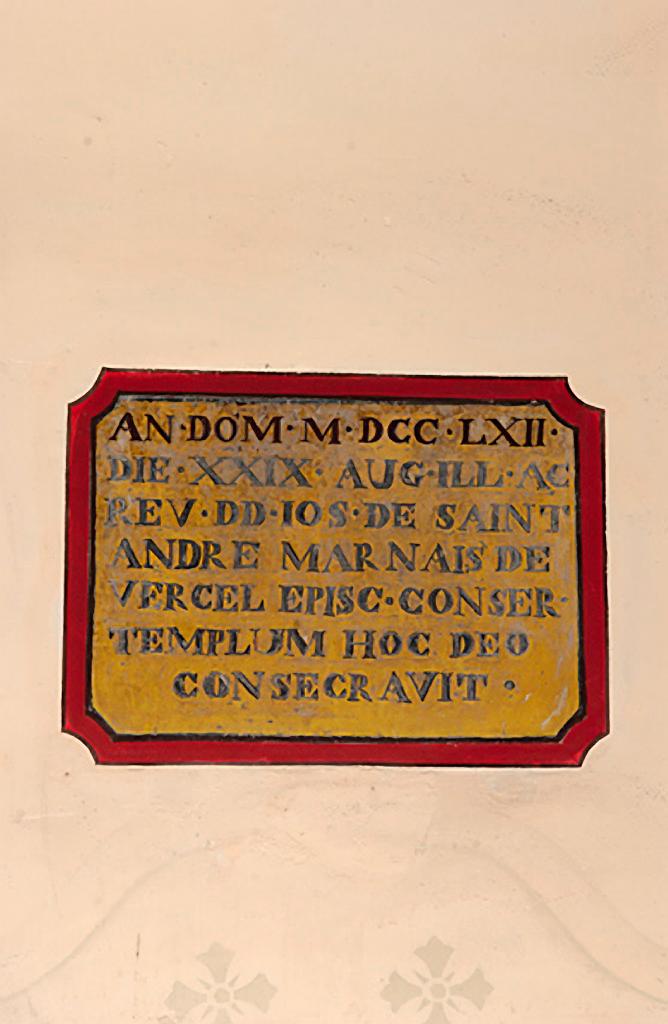 AN·DOM·M·DCC·LXII·
DIE·XXIX·AUG·ILL·AC
REV·DD·IOS·DE SAINT
ANDRE MARNAIS DE
VERCEL EPISC·CONSER·
TEMPLUM HOC DEO
CONSECRAVIT·